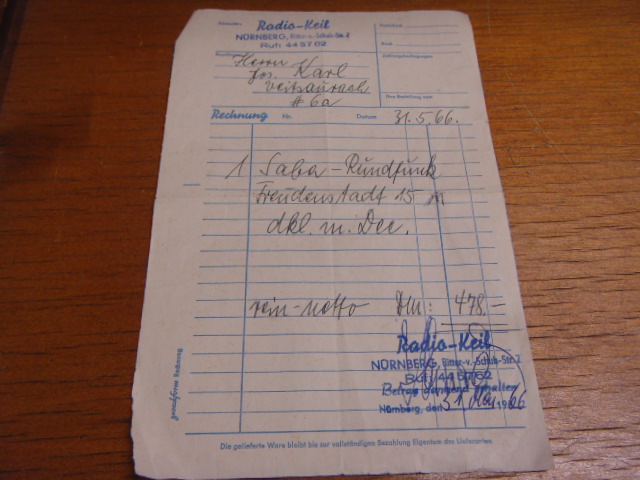 Absender:
Radio-Keil
NÜRNBERG, Ritter-v.-Schuh-Str. 2
Ruf: 44 57 02
Herrn
Jos. Karl
Veitsaurach
# 6a
Zahlungsbedingungen
Ihre Bestellung vom
Rechnung Nr. Datum 31.5.66.
1 Saba-Rundfunk
Freudenstadt 15 M
dkl. m. Dec.
rein-netto DM: 478.-
Radio-Keil
NÜRNBERG, Ritter-v.-Schuh-Str. 2
Ruf: 44 57 02
Betrag dankend erhalten
Nürnberg, den 31. Mai 1966
Die gelieferte Ware bleibt bis zur vollständigen Bezahlung Eigentum des Lieferanten.
zweckform Rechnung